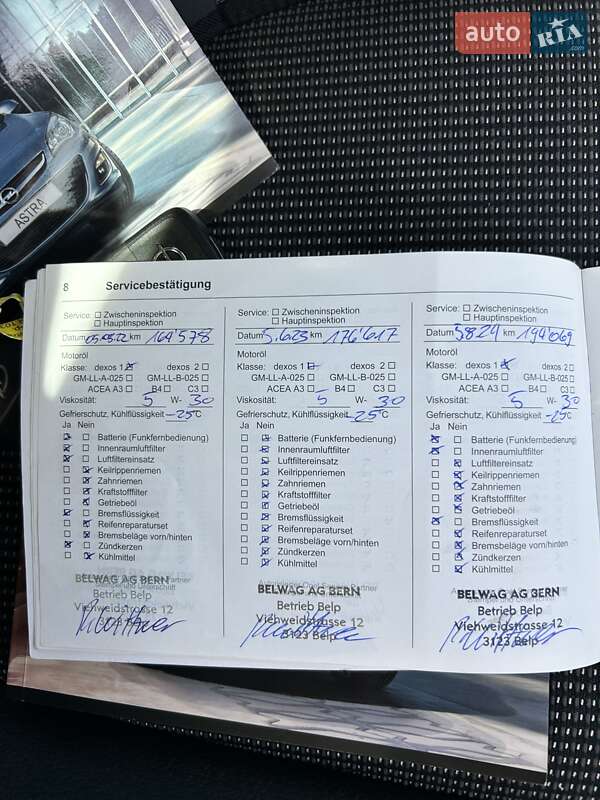 auto RIA.com
ASTRA
8 Servicebestätigung
Service: Zwischeninspektion
Hauptinspektion
Datum 05.05.22 km 164'578
Motoröl
Klasse: dexos 1 dexos 2
GM-LL-A-025 GM-LL-B-025
ACEA A3 B4 C3
Viskosität: 5 W- 30
Gefrierschutz, Kühlflüssigkeit -25°C
Ja Nein
Batterie (Funkfernbedienung)
Innenraumluftfilter
Luftfiltereinsatz
Keilrippenriemen
Zahnriemen
Kraftstofffilter
Getriebeöl
Bremsflüssigkeit
Reifenreparaturset
Bremsbeläge vorn/hinten
Zündkerzen
Kühlmittel
BELWAG AG BERN
Betrieb Belp
Viehweidstrasse 12
3123 Belp
Service: Zwischeninspektion
Hauptinspektion
Datum 5.6.23 km 176'617
Motoröl
Klasse: dexos 1 dexos 2
GM-LL-A-025 GM-LL-B-025
ACEA A3 B4 C3
Viskosität: 5 W- 30
Gefrierschutz, Kühlflüssigkeit -25°C
Ja Nein
Batterie (Funkfernbedienung)
Innenraumluftfilter
Luftfiltereinsatz
Keilrippenriemen
Zahnriemen
Kraftstofffilter
Getriebeöl
Bremsflüssigkeit
Reifenreparaturset
Bremsbeläge vorn/hinten
Zündkerzen
Kühlmittel
BELWAG AG BERN
Betrieb Belp
Viehweidstrasse 12
3123 Belp
Service: Zwischeninspektion
Hauptinspektion
Datum 5.8.24 km 194'069
Motoröl
Klasse: dexos 1 dexos 2
GM-LL-A-025 GM-LL-B-025
ACEA A3 B4 C3
Viskosität: 5 W- 30
Gefrierschutz, Kühlflüssigkeit -25°C
Ja Nein
Batterie (Funkfernbedienung)
Innenraumluftfilter
Luftfiltereinsatz
Keilrippenriemen
Zahnriemen
Kraftstofffilter
Getriebeöl
Bremsflüssigkeit
Reifenreparaturset
Bremsbeläge vorn/hinten
Zündkerzen
Kühlmittel
BELWAG AG BERN
Betrieb Belp
Viehweidstrasse 12
3123 Belp